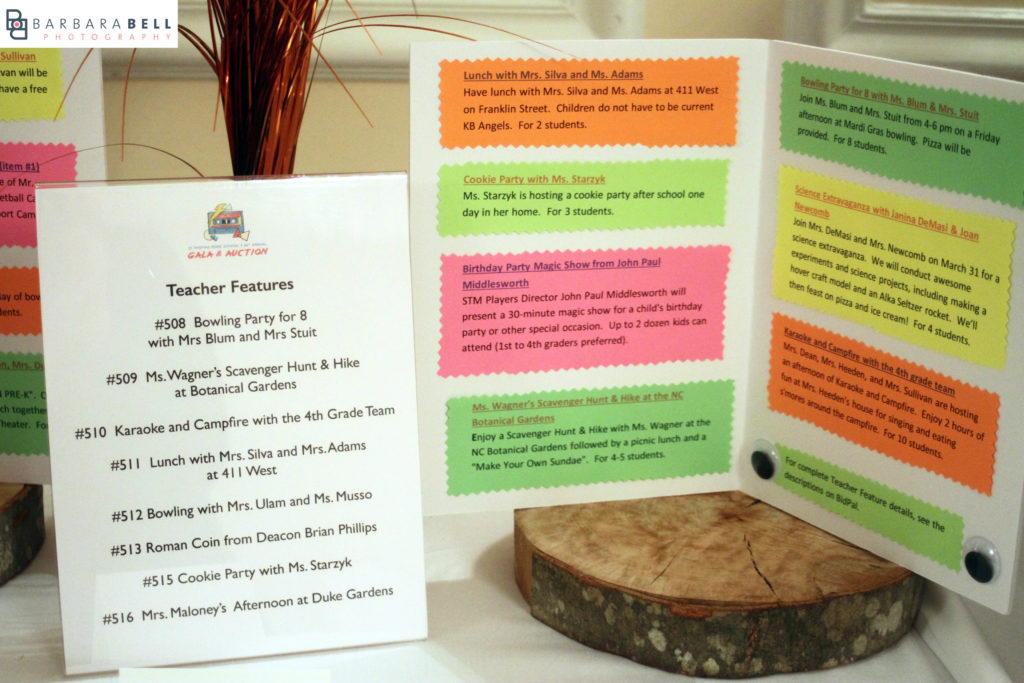 BARBARA BELL
PHOTOGRAPHY
Sullivan
van will be
have a free
(item #1)
e of Mr.
etball Ca
ort Cam
ay of bow
dents.
en, Mrs. D
PRE-K". C
ch together
heater. Fo
GALA & AUCTION
Teacher Features
#508 Bowling Party for 8
with Mrs Blum and Mrs Stuit
#509 Ms. Wagner's Scavenger Hunt & Hike
at Botanical Gardens
#510 Karaoke and Campfire with the 4th Grade Team
#511 Lunch with Mrs. Silva and Mrs. Adams
at 411 West
#512 Bowling with Mrs. Ulam and Ms. Musso
#513 Roman Coin from Deacon Brian Phillips
#515 Cookie Party with Ms. Starzyk
#516 Mrs. Maloney's Afternoon at Duke Gardens
Lunch with Mrs. Silva and Ms. Adams
Have lunch with Mrs. Silva and Ms. Adams at 411 West
on Franklin Street. Children do not have to be current
KB Angels. For 2 students.
Cookie Party with Ms. Starzyk
Ms. Starzyk is hosting a cookie party after school one
day in her home. For 3 students.
Birthday Party Magic Show from John Paul
Middlesworth
STM Players Director John Paul Middlesworth will
present a 30-minute magic show for a child's birthday
party or other special occasion. Up to 2 dozen kids can
attend (1st to 4th graders preferred).
Ms. Wagner's Scavenger Hunt & Hike at the NC
Botanical Gardens
Enjoy a Scavenger Hunt & Hike with Ms. Wagner at the
NC Botanical Gardens followed by a picnic lunch and a
"Make Your Own Sundae". For 4-5 students.
Bowling Party for 8 with Ms. Blum & Mrs. Stuit
Join Ms. Blum and Mrs. Stuit from 4-6 pm on a Friday
afternoon at Mardi Gras bowling. Pizza will be
provided. For 8 students.
Science Extravaganza with Janina DeMasi & Joan
Newcomb
Join Mrs. DeMasi and Mrs. Newcomb on March 31 for a
science extravaganza. We will conduct awesome
experiments and science projects, including making a
hover craft model and an Alka Seltzer rocket. We'll
then feast on pizza and ice cream! For 4 students.
Karaoke and Campfire with the 4th grade team
Mrs. Dean, Mrs. Heeden, and Mrs. Sullivan are hosting
an afternoon of Karaoke and Campfire. Enjoy 2 hours of
fun at Mrs. Heeden's house for singing and eating
s'mores around the campfire. For 10 students.
For complete Teacher Feature details, see the
descriptions on BidPal.